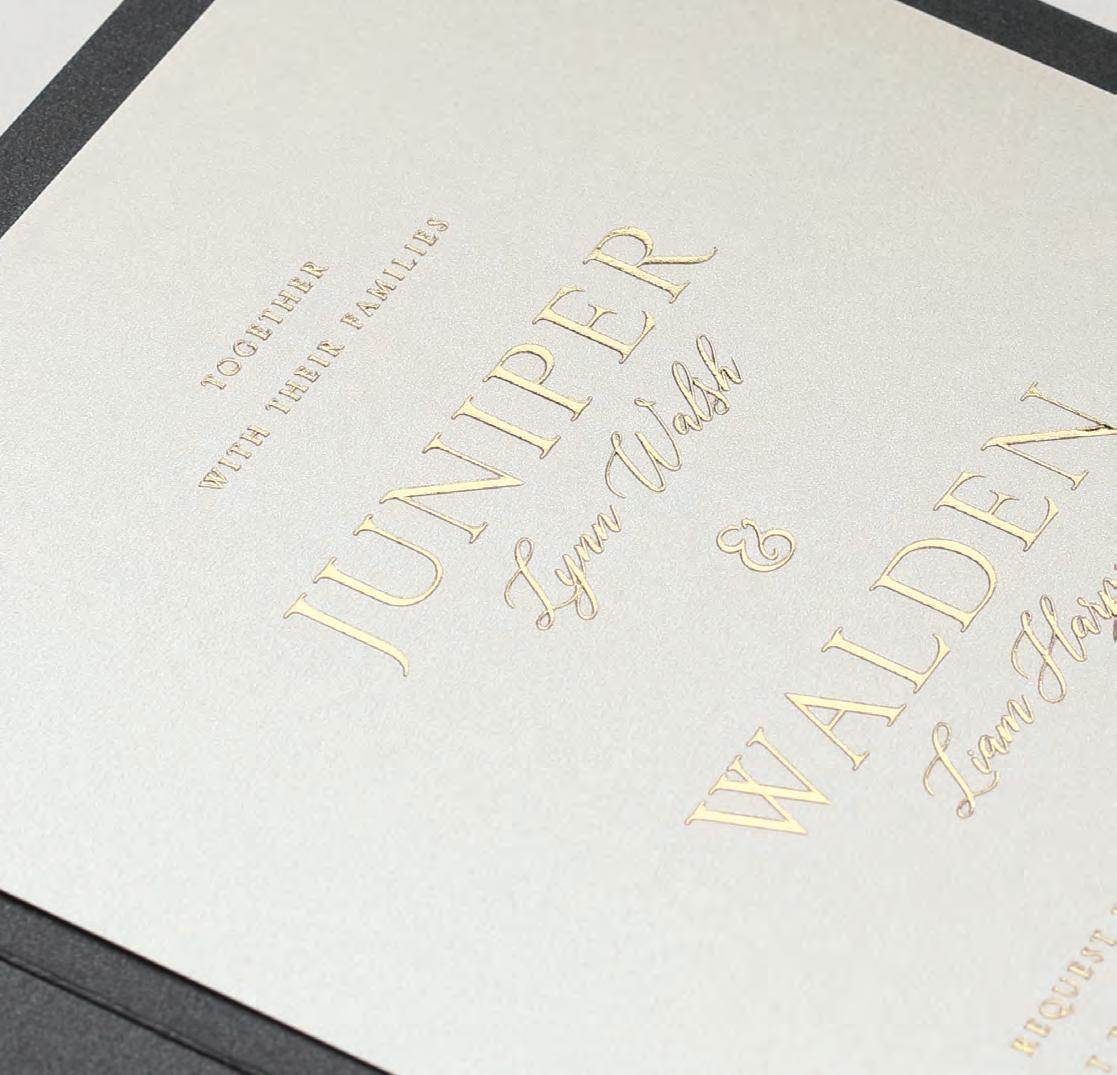 TOGETHER
WITH THEIR FAMILIES
JUNIPER
Lynn Walsh
&
WALDEN
Liam
REQUEST